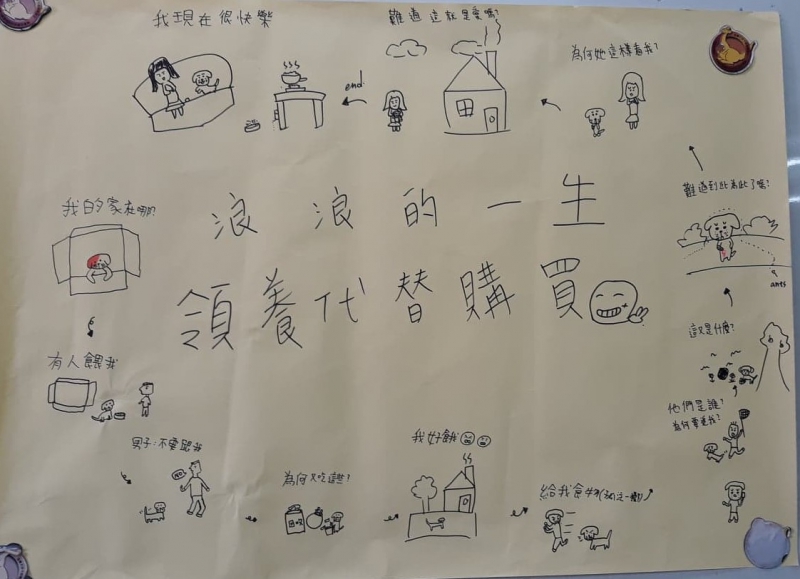 我現在很快樂
難道這就是愛嗎?
為何她這樣看我?
end
難道到此為此了嗎?
浪浪的一生
我的家在哪?
領養代替購買
ants
這又是什麼?
有人餵我
他們是誰?
為何要追我?
男子:不要跟我
NO
我好餓
為何只吃這些?
給我食物